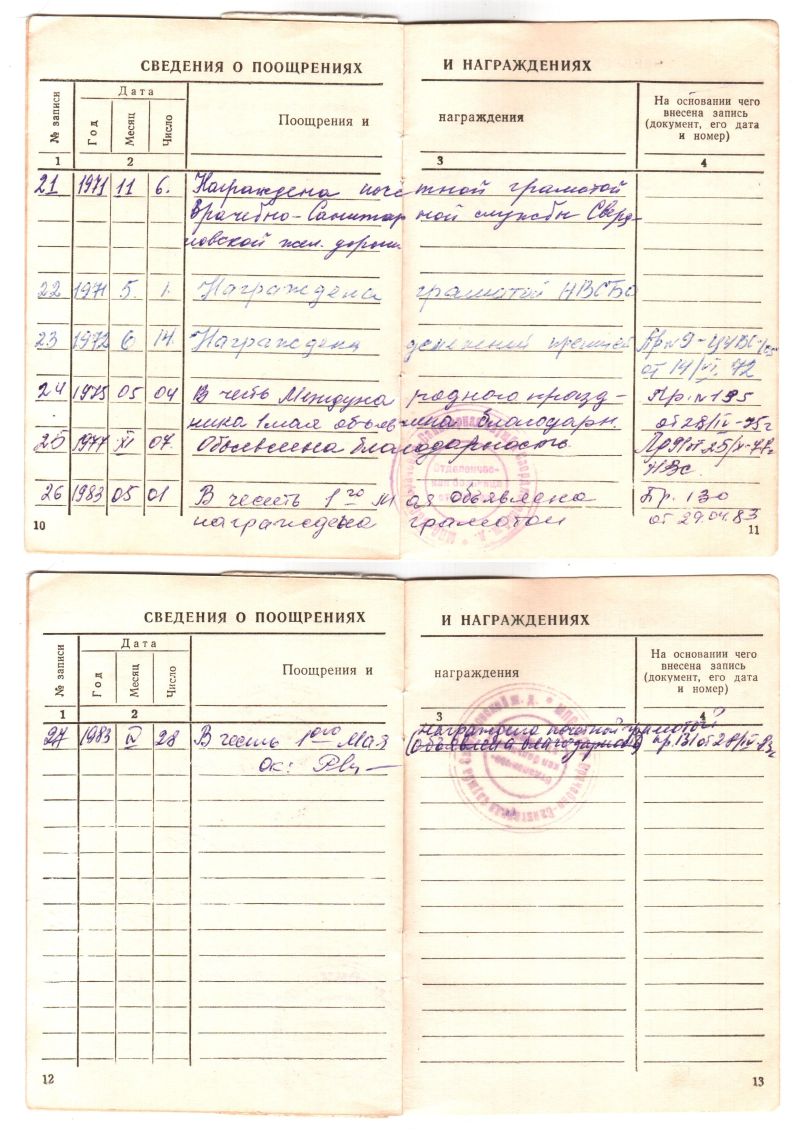 СВЕДЕНИЯ О ПООЩРЕНИЯХ И НАГРАЖДЕНИЯХ
№ записи
Дата
Год
Месяц
Число
Поощрения и награждения
На основании чего
внесена запись
(документ, его дата
и номер)
1 2 3 4
21 1971 11 6. Награждена почётной грамотой
Врачебно-Санитарной службы Сверд-
ловской жел. дороги
22 1971 5. 1. Награждена грамотой НВСБО
23 1972 6 14. Награждена денежной премией Пр №9
от 14/VI, 72
24 1975 05 04 В честь Междуна родного празд- Пр. №195
ника 1 мая объявлена благодарн. от 28/IV-75г
25 1977 XI 07. Объявлена благодарность Пр
НВС.
26 1983 05 01 В честь 1го мая объявлена Пр. 130
награждена грамотой от 29.04.83
10 11
СВЕДЕНИЯ О ПООЩРЕНИЯХ И НАГРАЖДЕНИЯХ
№ записи
Дата
Год
Месяц
Число
Поощрения и награждения
На основании чего
внесена запись
(документ, его дата
и номер)
1 2 3 4
награждена почётной грамотой
27 1983 IV 28 В честь 1ого Мая (объявлена благодарность) пр. 131 от 28/IV-83г
12 13